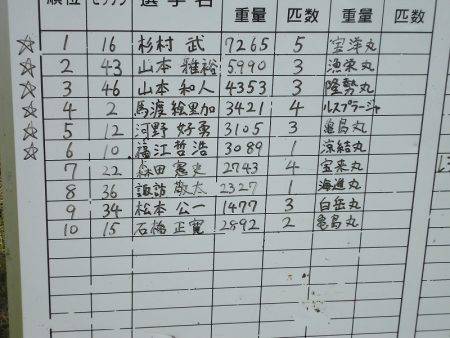 順位 ゼッケン 選手名 重量 匹数 重量 匹数
☆ 1 16 杉村 武 7265 5 宝洋丸
☆ 2 43 山本 雅裕 5990 3 漁栄丸
☆ 3 46 山本 和人 4353 3 隆勢丸
☆ 4 2 馬渡 絵里加 3421 4 ルスプラージャ
☆ 5 12 河野 好勇 3105 3 亀島丸
☆ 6 10 福江 哲浩 3089 1 涼結丸
7 22 森田 憲史 2743 4 宝来丸
8 36 諏訪 敬太 2327 1 海進丸
9 34 松本 公一 1477 3 白岳丸
10 15 石橋 正寛 2892 2 亀島丸